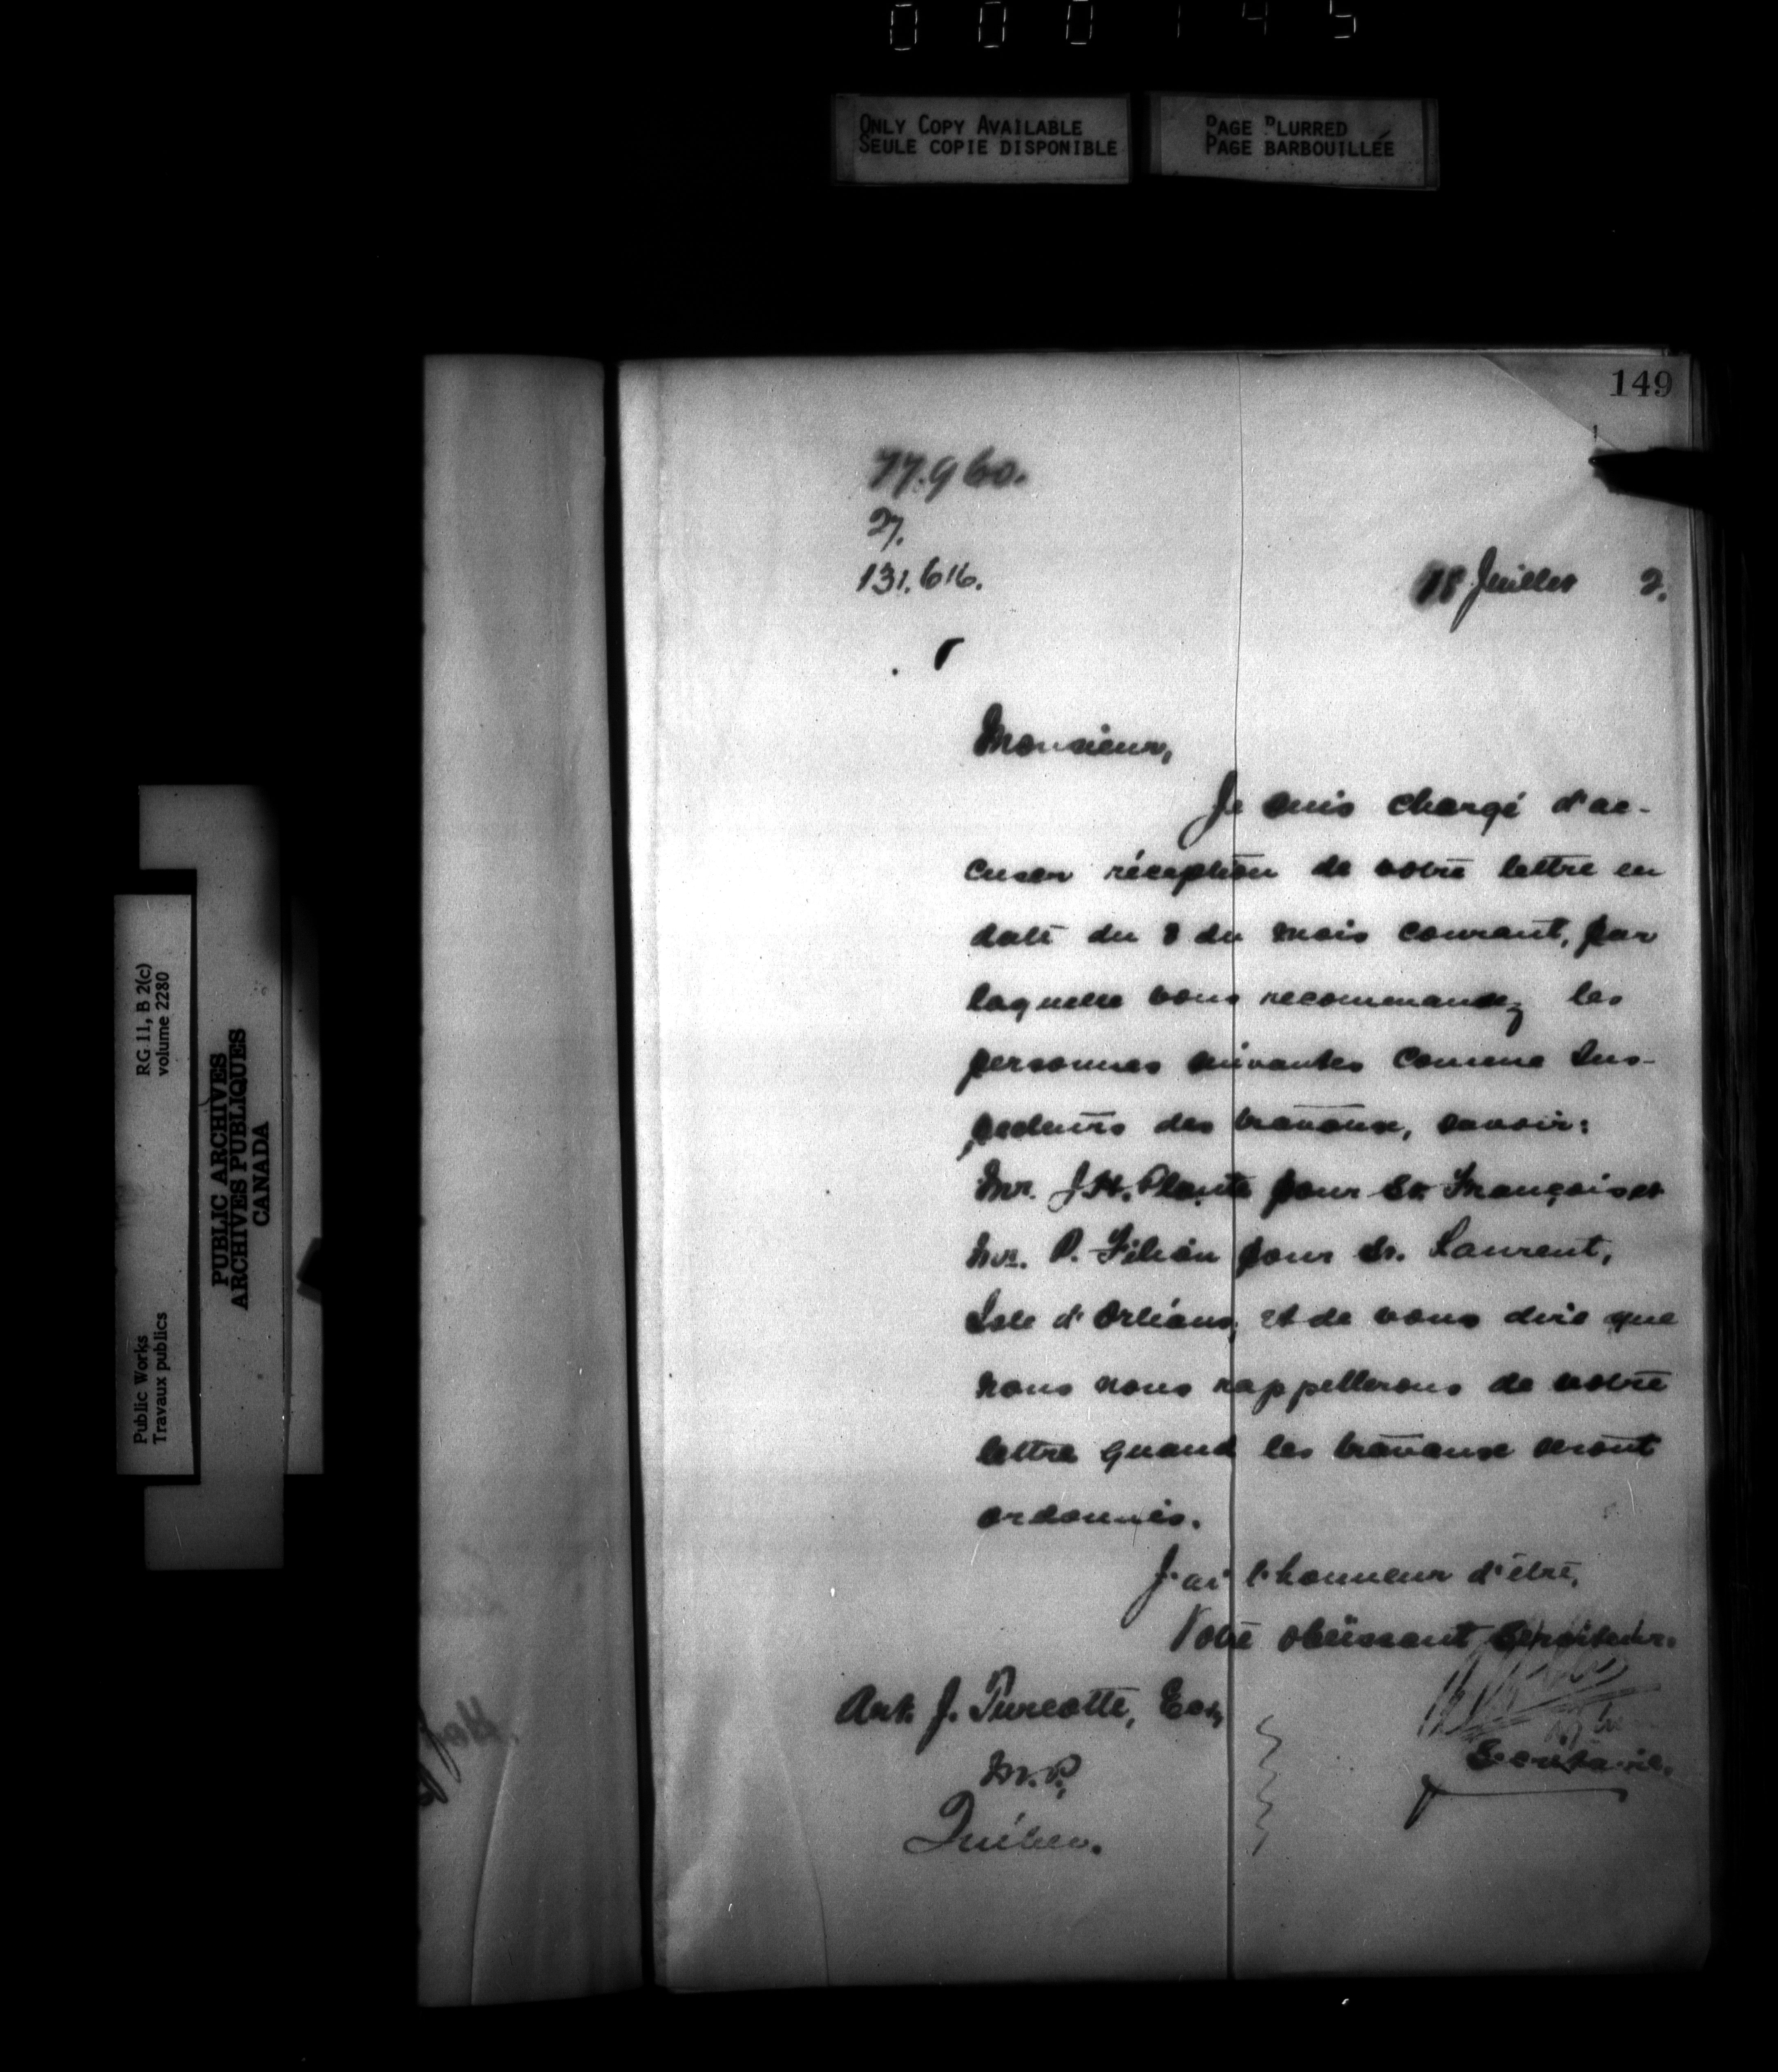 000145
ONLY COPY AVAILABLE
SEULE COPIE DISPONIBLE
PAGE BLURRED
PAGE BARBOUILLÉE
149
77.960.
27.
131.616.
18 Juillet 2.
Monsieur,
Je suis chargé d'ac-
cuser réception de votre lettre en
date du 8 du mois courant, par
laquelle vous recommandez les
personnes suivantes comme Ins-
pecteurs des travaux, savoir:
Mr. J.H. Plante pour St. François et
Mr. P. Filion pour St. Laurent,
Isle d'Orléans, et de vous dire que
nous nous rappellerons de votre
lettre quand les travaux seront
ordonnés.
J'ai l'honneur d'être,
Votre obéissant Serviteur.
Secrétaire.
Art. J. Turcotte, Esq
M.P,
Québec.
Public Works
Travaux publics
RG 11, B 2(c)
volume 2280
PUBLIC ARCHIVES
ARCHIVES PUBLIQUES
CANADA